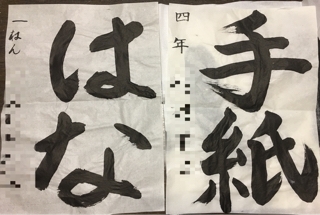 手紙
四年
はな
一ねん